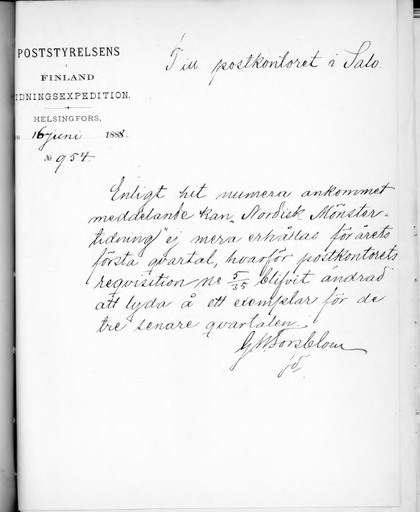 POSTSTYRELSENS
I
FINLAND
IDNINGSEXPEDITION.
HELSINGFORS,
16 juni 1888.
№ 954.
Till postkontoret i Salo.
Enligt hit numera ankommet
meddelande kan "Nordisk Mönster-
tidning" ej mera erhållas för årets
första qvartal, hvarför postkontorets
reqvisition № 5/35 blifvit ändrad
att lyda å ett exemplar för de
tre senare qvartalen.